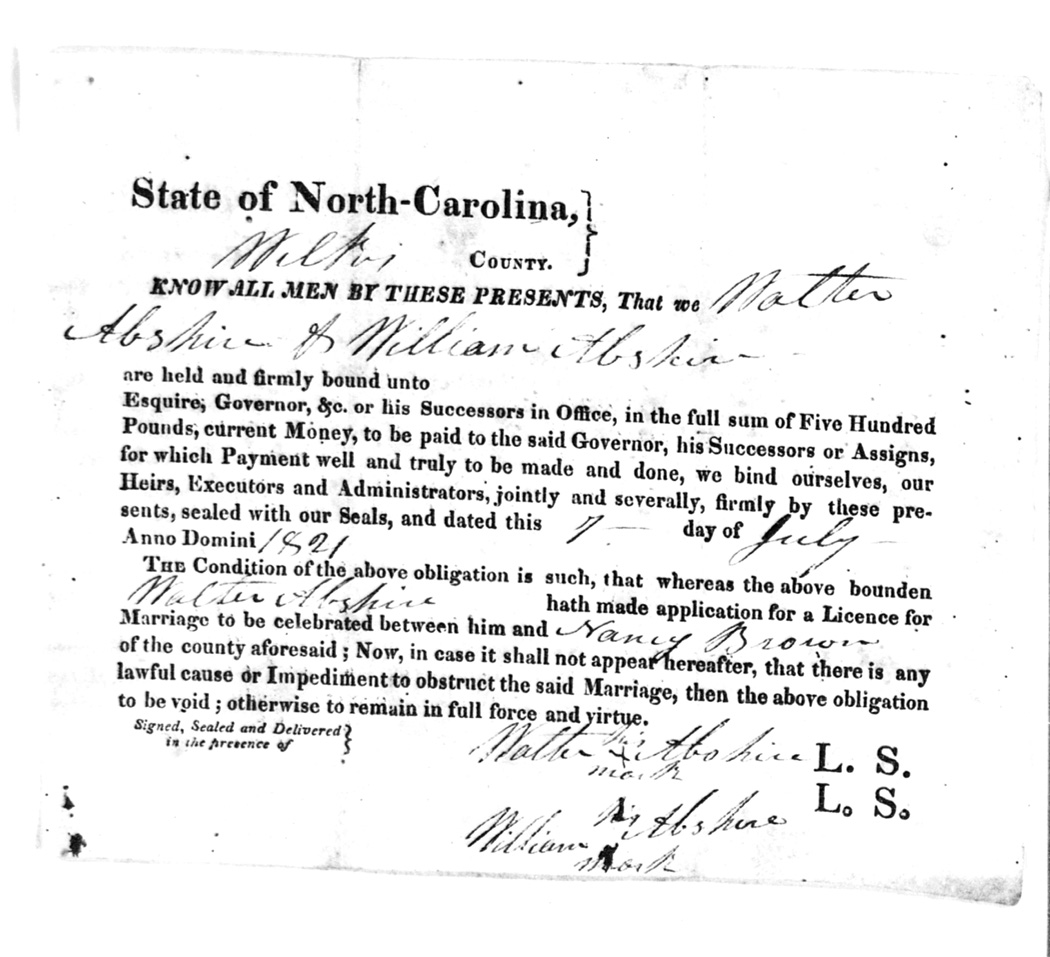 State of North-Carolina,}
Wilks COUNTY. }
KNOW ALL MEN BY THESE PRESENTS, That we Walter
Abshire & William Abshire
are held and firmly bound unto
Esquire, Governor, &c. or his Successors in Office, in the full sum of Five Hundred
Pounds, current Money, to be paid to the said Governor, his Successors or Assigns,
for which Payment well and truly to be made and done, we bind ourselves, our
Heirs, Executors and Administrators, jointly and severally, firmly by these pre-
sents, sealed with our Seals, and dated this 7 day of July
Anno Domini 1821
THE Condition of the above obligation is such, that whereas the above bounden
Walter Abshire hath made application for a Licence for
Marriage to be celebrated between him and Nancy Brown
of the county aforesaid; Now, in case it shall not appear hereafter, that there is any
lawful cause or Impediment to obstruct the said Marriage, then the above obligation
to be void; otherwise to remain in full force and virtue.
Signed, Sealed and Delivered }
in the presence of
Walter his x mark Abshire L. S.
L. S.
William his mark Abshire